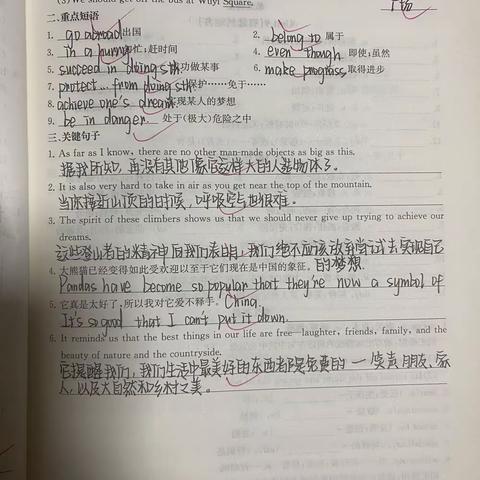 (3) We should get off the bus at Wuyi Square. 广场
二、重点短语
1. go abroad 出国
2. belong to 属于
3. in a hurry 匆忙;赶时间
4. even though 即使;虽然
5. succeed in doing sth. 成功做某事
6. make progress 取得进步
7. protect... from doing sth. 保护……免于……
8. achieve one's dream 实现某人的梦想
9. be in danger 处于(极大)危险之中
三、关键句子
1. As far as I know, there are no other man-made objects as big as this.
据我所知,再没有其他像它这样大的人造物体了。
2. It is also very hard to take in air as you get near the top of the mountain.
当你接近山顶的时候,呼吸空气也很难。
3. The spirit of these climbers shows us that we should never give up trying to achieve our
dreams.
这些登山者的精神向我们表明,我们绝不应该放弃尝试去实现自己
的梦想.
4. 大熊猫已经变得如此受欢迎以至于它们现在是中国的象征。
Pandas have become so popular that they're now a symbol of
China.
5. 它真是太好了,所以我对它爱不释手。
It's so good that I can't put it down.
6. It reminds us that the best things in our life are free—laughter, friends, family, and the
beauty of nature and the countryside.
它提醒我们,我们生活中最美好的东西都是免费的一笑声、朋友、家
人,以及大自然和乡村之美。